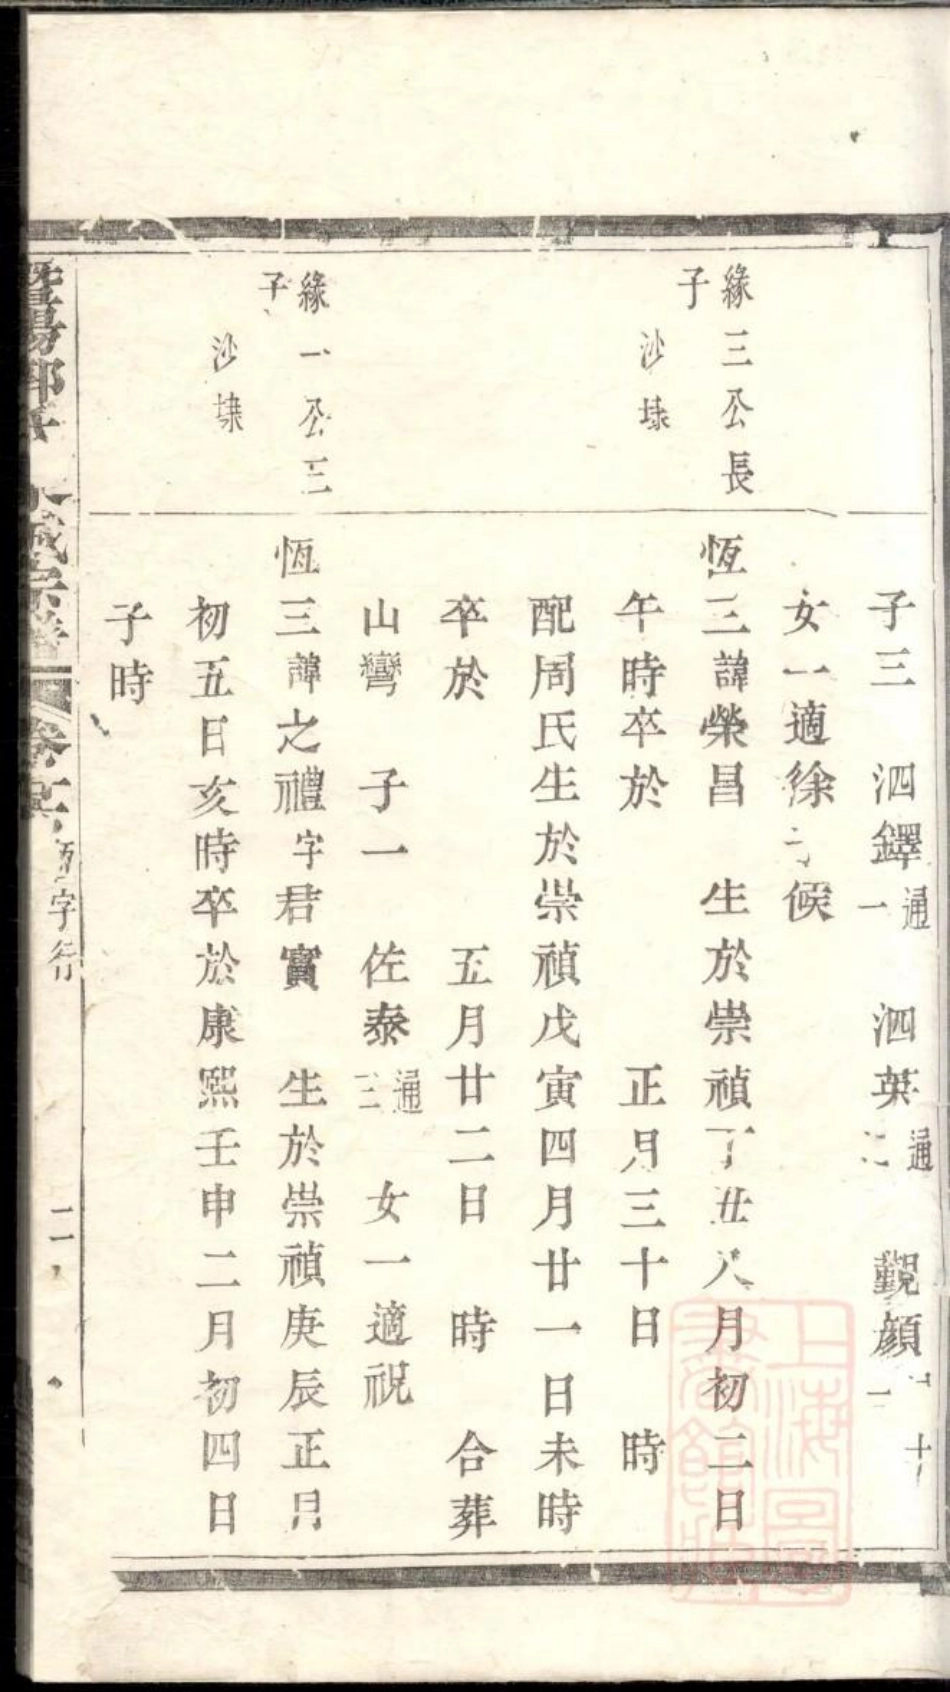 子三 泗鐸通一 泗英通二 覲顏
女一適徐 候
緣三公長
子
沙埭
恆三諱榮昌 生於崇禎丁丑八月初二日
午時卒於 正月三十日 時
配周氏生於崇禎戊寅四月廿一日未時
卒於 五月廿二日 時 合葬
山彎 子一 佐泰通三 女一適祝
緣一公三
子
沙埭
恆三諱之禮字君實 生於崇禎庚辰正月
初五日亥時卒於康熙壬申二月初四日
子時
宗譜 恆字行 二
上海圖書館藏